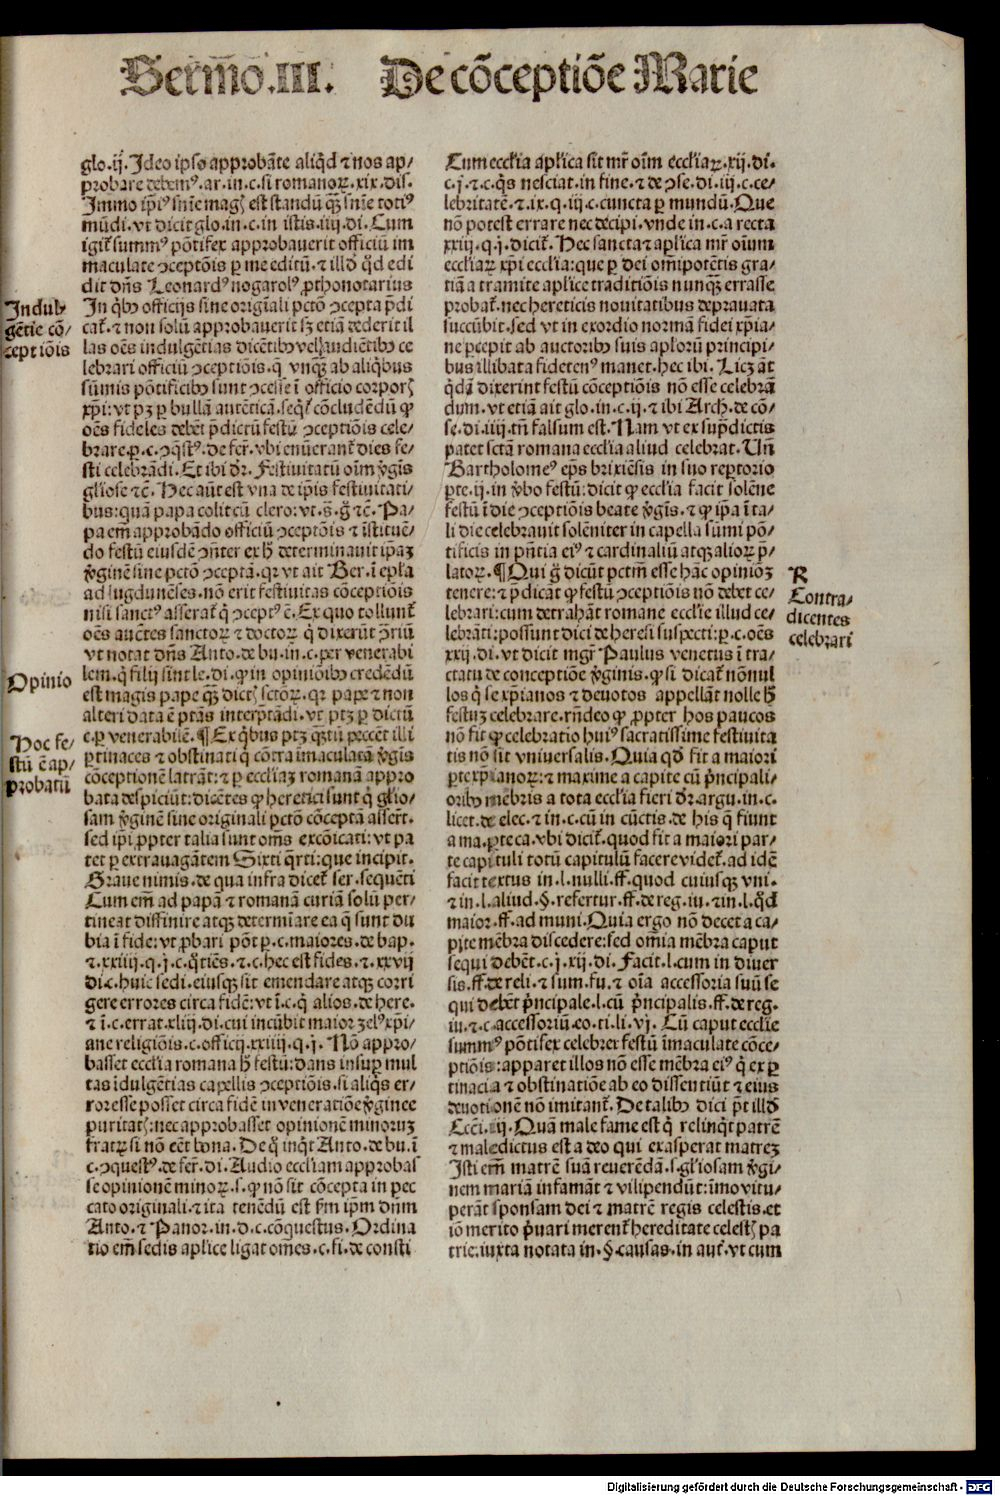 Sermõ.III. De cõceptiõe Marie
glo.ij. Ideo ipso approbãte aliq̃d ⁊ nos ap/
probare debemꝰ. ar. in. c. si romanoꝝ. xix. dis.
Immo ip̃iꝰ sñie magꝭ est standũ qꝫ sñie totiꝰ
mũdi. vt dicit glo. in. c. in istis. iiij. di. Cum
igit̃ summꝰ põtifex approbauerit officiũ im
maculate ꝯceptõis ꝑ me editũ. ⁊ illđ q̃d edi
dit dñs Leonardꝰ nogarolꝰ ꝓthonotarius
In q̃bꝰ officijs sine origĩali pctõ ꝯcepta p̃di
cat̃. ⁊ non solũ approbauerit sꝫ etiã dederit il
las oẽs indulgẽtias dicẽtibꝰ vel audiẽtibꝰ ce
lebrari officiũ ꝯceptiõis. q̃ vnqꝫ ab aliq̃bus
sũmis põtificibꝰ sunt ꝯcesse ĩ officio corporꝭ
xp̃i: vt pꝫ ꝑ bullã autẽticã. seq̃t̃ cõcludẽdũ ꝙ
oẽs fideles debẽt p̃dictũ festũ ꝯceptiõis cele/
brare. ꝑ. c. ꝯq̃stꝰ. de fer̃. vbi enũerant̃ dies fe/
sti celebrãdi. Et ibi dr̃. Festiuitatũ oĩm ṽgĩs
gliose ⁊c̃. Hec aũt est vna de ip̃is festiuitati/
bus: quã papa colit cũ clero: vt. s̃. g̃ ⁊c̃. Pa/
pa em̃ approbãdo officiũ ꝯceptiõis ⁊ ĩstituẽ/
do festũ eiusdẽ ꝯñter ex h̃ determinauit ip̃aꝫ
ṽginẽ sine pctõ ꝯceptã. qꝛ vt ait Ber. ĩ ep̃la
ad lugdunẽses. nõ erit festiuitas cõceptiõis
nisi sanctꝰ asserat̃ q̃ ꝯceptꝰ ẽ. Ex quo tollunt̃
oẽs aucẽtes sanctoꝝ ⁊ doctoꝝ q̃ dixerũt ꝯ̃riũ
vt notat dñs Anto. de bu. in. c. per venerabi
lem. q̃ filij sint le. di. ꝙ in opiniõibꝰ credẽdũ
est magis pape qꝫ dictꝭ sctõꝝ. qꝛ pape ⁊ non
alteri data ẽ ptãs interp̃tãdi. vt ptꝫ ꝑ dictũ
c. ꝑ venerabilẽ. ¶ Ex q̃bus ptꝫ qꝫtũ peccẽt illi
ꝑtinaces ⁊ obstinati q̃ cõtra ĩmaculatã ṽgĩs
cõceptionẽ latrãt: ⁊ ꝑ ecclĩaꝫ romanã appro
bata despiciũt: dicẽtes ꝙ heretici sunt q̃ glio/
sam ṽginẽ sine originali pctõ cõceptã asser̃t.
sed ip̃i ꝓpter talia sunt om̃s excõicati: vt pa
tet ꝑ extrauagãtem Sixti q̃rti: que incipit.
Graue nimis. de qua infra dicet̃ ser. sequẽti
Cum em̃ ad papã ⁊ romanã curiã solũ per/
tineat diffinire atqꝫ determĩare ea q̃ sunt du
bia ĩ fide: vt ꝓbari põt ꝑ. c. maiores. de bap.
⁊. xxiiij. q. j. c. q̃tiẽs. ⁊. c. hec est fides. ⁊. xxvij
di. c. huic sedi. eiusqꝫ sit emendare atqꝫ corri
gere errores circa fidẽ: vt ĩ. c. q̃ alios. de here.
⁊ ĩ. c. errat. xliij. di. cui incũbit maior zelꝰ xp̃i/
ane religiõis. c. officij. xxiiij. q. j. Nõ appro/
basset ecclĩa romana h̃ festũ: dans insuꝑ mul
tas ĩdulgẽtias capellis ꝯceptiõis. si aliq̃s er/
ror esse posset circa fidẽ in veneratiõe ṽginee
puritatꝭ: nec approbasset opinionẽ minoruꝫ
fratꝝ si nõ eẽt bona. De q̃ inq̃t Anto. de bu. ĩ
c. ꝯquestꝰ. de fer̃. di. Audio eccliam approbas
se opinionẽ minoꝝ. s. ꝙ nõ sit cõcepta in pec
cato originali. ⁊ ita tenẽdũ est ẽm ip̃m dñm
Anto. ⁊ Panor. in. d. c. cõquestus. Ordina
tio em̃ sedis aplice ligat omẽs. c. fi. de consti
Indul/
gẽtie cõ/
ceptiõis
Opinio
Hoc fe/
stũ ẽ ap/
probatũ
Cum ecclĩa aplĩca sit mr̃ oĩm ecclĩaꝝ. xij. di.
c. j. ⁊. c. q̃s nesciat. in fine. ⁊ de ꝯse. di. iij. c. ce/
lebritatẽ. ⁊. ix. q. iij. c. cuncta ꝑ mundũ. Que
nõ potest errare nec decipi. vnde in. c. a recta
xxiij. q. j. dicit̃. Hec sancta ⁊ aplĩca mr̃ oĩum
ecclĩaꝝ xp̃i ecclĩa: que ꝑ dei om̃ipotẽtis gra/
tiã a tramite aplice traditiõis nunqꝫ errasse
probat̃. nec hereticis nouitatibus deprauata
succũbit. sed vt in exordio normã fidei xp̃ia/
ne ꝑcepit ab auctoribꝰ suis aplorũ principi/
bus illibata fidetenꝰ manet. hec ibi. Licꝫ ãt
q̃dã dixerint festũ cõceptiõis nõ esse celebrã
dum. vt etiã ait glo. in. c. ij. ⁊ ibi Arch. de cõ/
se. di. iiij. tñ falsum est. Nam vt ex sup̃dictis
patet sctã romana ecclĩa aliud celebrat. Uñ
Bartholomeꝰ ep̃s brixiẽsis in suo reptorio
ꝑte. ij. in ṽbo festũ: dicit ꝙ ecclĩa facit solẽne
festũ ĩ die ꝯceptiõis beate ṽgĩs. ⁊ ꝙ ip̃a ĩ ta/
li die celebrauit solẽniter in capella sũmi põ/
tificis in pñtia eiꝰ ⁊ cardinaliũ atqꝫ alioꝝ p̃/
latoꝝ. ¶ Qui g̃ dicũt pctm̃ esse hãc opinioꝫ
tenere: ⁊ p̃dicãt ꝙ festũ ꝯceptiõis nõ debet ce/
lebrari: cum detrahãt romane ecclĩe illud ce/
lebrãti: possunt dici de heresi suspecti: ꝑ. c. oẽs
xxij. di. vt dicit mgr̃ Paulus venetus ĩ tra/
ctatu de conceptiõe ṽginis. ꝙ si dicat̃ nõnul
los q̃ se xp̃ianos ⁊ deuotos appellãt nolle h̃
festuꝫ celebrare. rñdeo ꝙ ꝓpter hos paucos
nõ fit ꝙ celebratio huiꝰ sacratissime festiuita
tis nõ sit vniuersalis. Quia qđ fit a maiori
ꝑte xp̃ianoꝝ: ⁊ maxime a capite cũ p̃ncipali/
oribꝰ mẽbris a tota ecclĩa fieri dr̃. argu. in. c.
licet. de elec. ⁊ in. c. cũ in cũctis. de his q̃ fiunt
a ma. ꝑte ca. vbi dicit̃. quod fit a maiori par/
te capituli totũ capitulũ facere videt̃. ad idẽ
facit textus in. l. nulli. ff. quod cuiusqꝫ vni.
⁊ in. l. aliud. §. refertur. ff. de reg. iu. ⁊ in. l. q̃d
maior. ff. ad muni. Quia ergo nõ decet a ca/
pite mẽbra discedere: sed om̃ia mẽbra caput
sequi debẽt. c. j. xij. di. Facit. l. cum in diuer
sis. ff. de reli. ⁊ sum. fu. ⁊ oĩa accessoria suũ se
qui debẽt p̃ncipale. l. cũ p̃ncipalis. ff. de reg.
iu. ⁊. c. accessoriũ. eo. ti. li. vj. Cũ caput ecclĩe
summꝰ põtifex celebret festũ ĩmaculate cõce/
ptiõis: apparet illos nõ esse mẽbra eiꝰ q̃ ex ꝑ
tinacia ⁊ obstinatiõe ab eo dissentiũt ⁊ eius
deuotionẽ nõ imitant̃. De talibꝰ dici p̃t illđ
Ecci. iij. Quã male fame est q̃ relinq̃t patrẽ
⁊ maledictus est a deo qui exasperat matreꝫ
Isti em̃ matrẽ suã reuerẽdã. s. gliosam ṽgi/
nem mariã infamãt ⁊ vilipendũt: ĩmo vitu/
perãt sponsam dei ⁊ matrẽ regis celestis. et
iõ merito p̃uari merent̃ hereditate celestꝭ pa
trie: iuxta notata in. §. causas. in aut̃. vt cum
R
Contra/
dicentes
celebrari
Digitalisierung gefördert durch die Deutsche Forschungsgemeinschaft - DFG